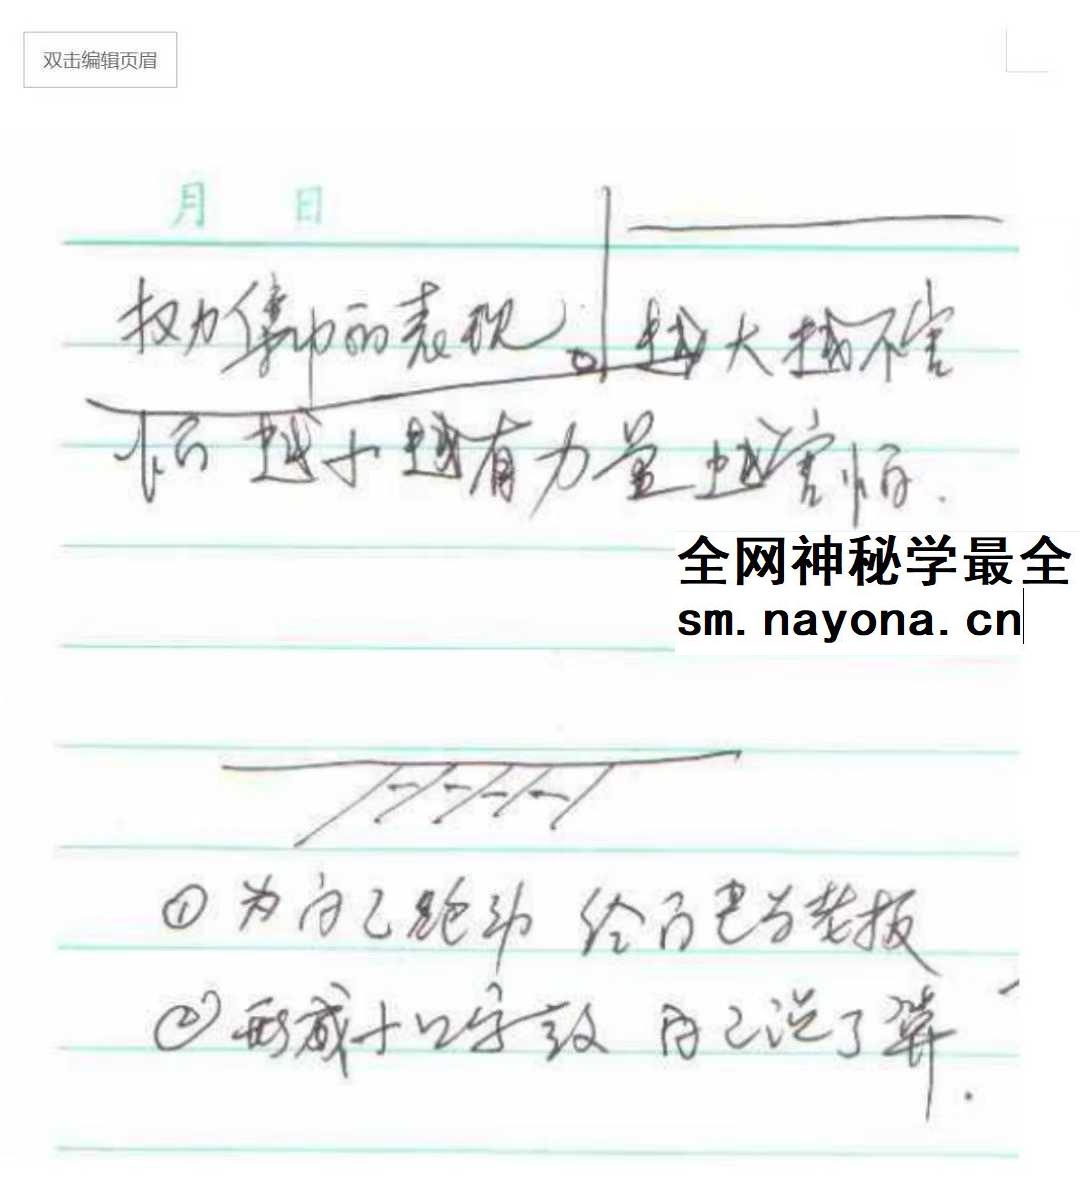 双击编辑页眉
月 日
权力集中的表现。越大越不害
怕 越小越有力量越害怕.
全网神秘学最全
sm.nayona.cn
① 为自己跑动 给自己当老板
② 形成十口字致 自己说了算.